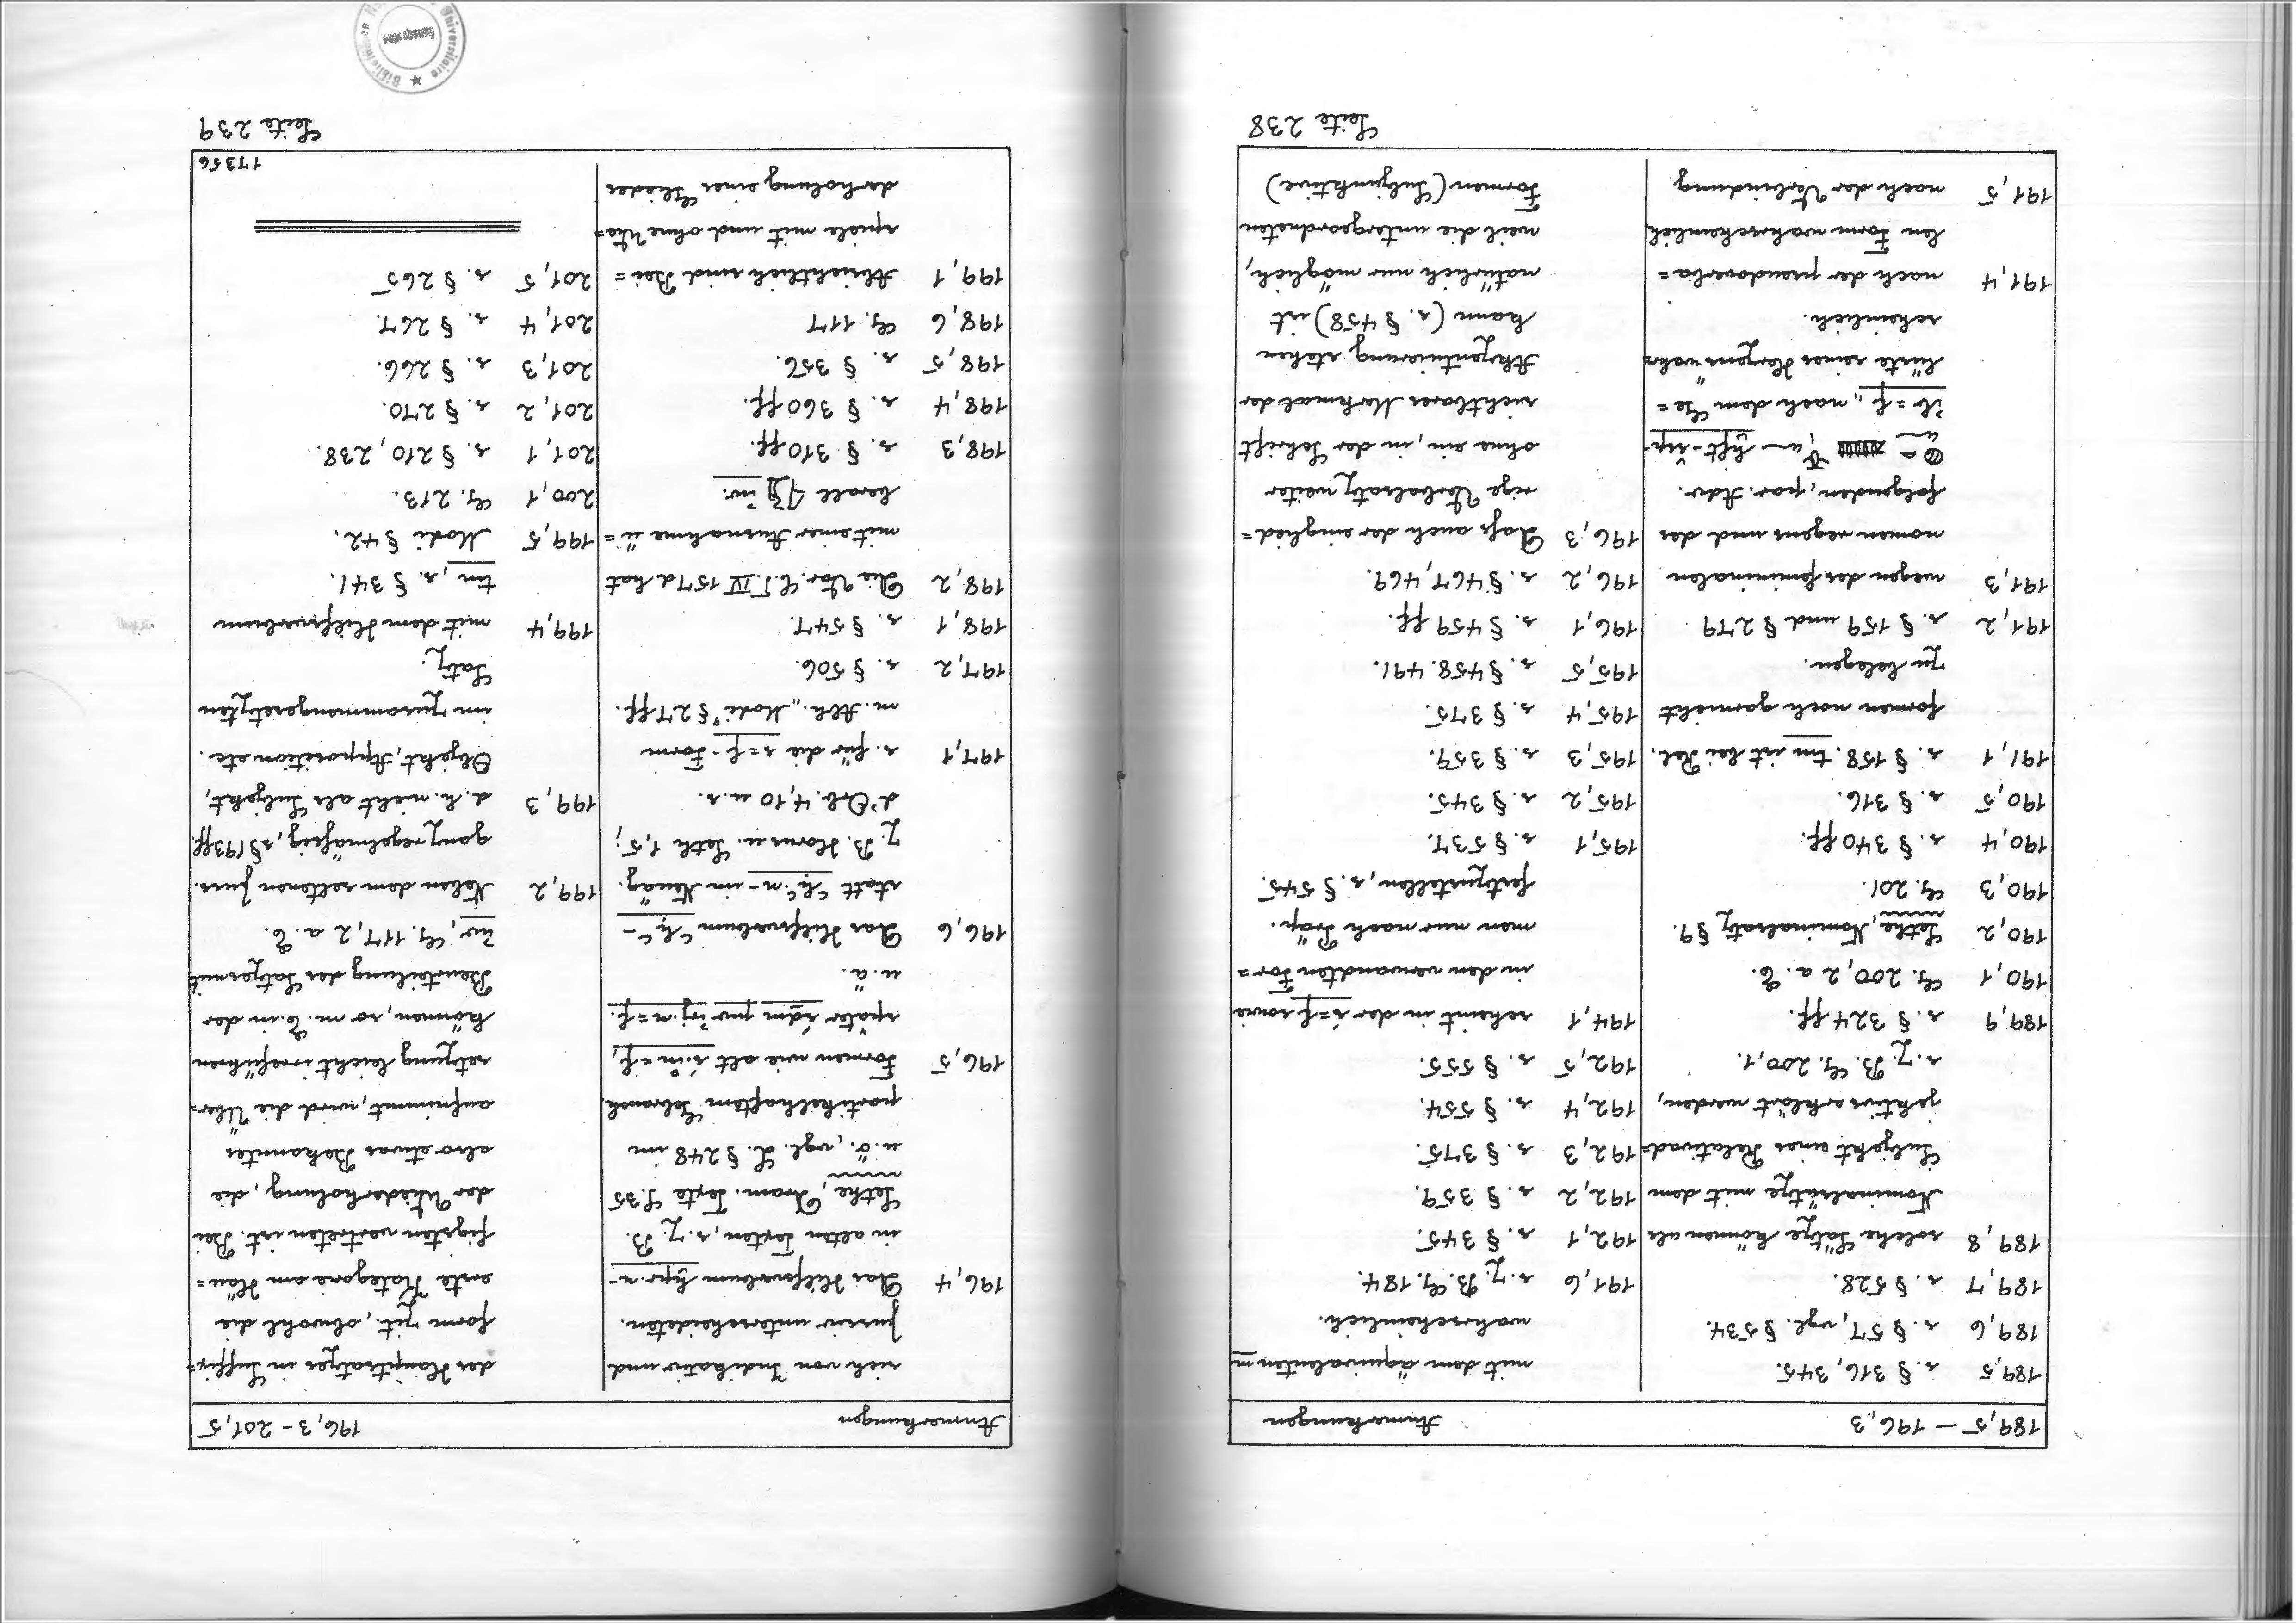 189,5 – 196,3 Anmerkungen
189,5 s. § 316, 345.
189,6 s. § 57, vgl. § 534.
189,7 s. § 528.
189,8 solche Sätze können als
Nominalsätze mit dem
Subjekt eines Relativad=
jektivs erklärt werden,
s. z. B. G. 200,1.
189,9 s. § 324 ff.
190,1 G. 200, 2 a. E.
190,2 Sethe, Nominalsatz § 9.
190,3 G. 201.
190,4 s. § 340 ff.
190,5 s. § 316.
191,1 s. § 158. tm ist bei Rel.
formen noch garnicht
zu belegen.
191,2 s. § 159 und § 279
191,3 wegen des femininalen
nomen regens und des
folgenden, par. Adv.
ib=f „nach dem Ge=
lüste seines Herzens" wahr=
scheinlich.
191,4 nach der pseudoverba=
len Form wahrscheinlich
191,5 nach der Verbindung
mit dem äquivalenten m
wahrscheinlich.
191,6 s. z. B. G. 184.
192,1 s. § 345.
192,2 s. § 359.
192,3 s. § 375.
192,4 s. § 554.
192,5 s. § 555.
194,1 scheint in der s=f sowie
in den verwandten For=
men nur nach Präp.
festzustellen, s. § 545.
195,1 s. § 537.
195,2 s. § 345.
195,3 s. § 359.
195,4 s. § 375.
195,5 s. § 458. 491.
196,1 s. § 459 ff.
196,2 s. § 467, 469.
196,3 Dass auch der eingglied=
rige Verbalsatz weiter
ohne ein, in der Schrift
sichtbares Merkmal der
Akzentuierung stehen
kann (s. § 458) ist
natürlich nur möglich,
weil die untergeordneten
Formen (Subjunktive)
Seite 238
Anmerkungen 196,3 – 201,5
sich von Indikativ und
Jussiv unterscheideten.
196,4 Das Hilfsverbum ḫpr.n-
in alten Texten, s. z. B.
Sethe, Dram. Texte S. 35
u. ö., vgl. L. § 248 im
partikelhaften Gebrauch.
196,5 Formen wie alt
später sḏm pw ir.n=f.
u. ä.
196,6 Das Hilfsverbum ꜥḥꜥ-
statt ꜥḥꜥ.n- im Neuäg.
z. B. Horus u. Seth 1,5;
d'Orb. 4,10 u. s.
197,1 s. für die s=f-Form
m. Abh. „Modi" § 27 ff.
197,2 s. § 506.
198,1 s. § 547.
198,2 Die Var. C.T. IV 157d hat
mit einer Ausnahme ü=
berall iw.
198,3 s. § 310 ff.
198,4 s. § 360 ff.
198,5 s. § 356.
198,6 G. 117
199,1 Absichtlich sind Bei=
spiele mit und ohne Wie=
derholung eines Gliedes
des Hauptsatzes in Suffix=
form zit., obwohl die
erste Kategorie am Häu=
figsten vertreten ist. Bei
der Wiederholung, die
also etwas Bekanntes
aufnimmt, wird die Über=
setzung leicht irreführen
können, so m. E. in der
Beurteilung des Satzes mit
iw, G. 117, 2 a. E.
199,2 Neben dem seltenen Juss.
ganz regelmässig, s § 193 ff.
199,3 d. h. nicht als Subjekt,
Objekt, Apposition etc.
im zusammengesetzten
Satz.
199,4 mit dem Hilfsverbum
tm, s. § 341.
199,5 Modi § 42.
200,1 G. 213.
201,1 s. § 210, 238.
201,2 s. § 270.
201,3 s. § 266.
201,4 s. § 267.
201,5 s. § 265
17356
Seite 239